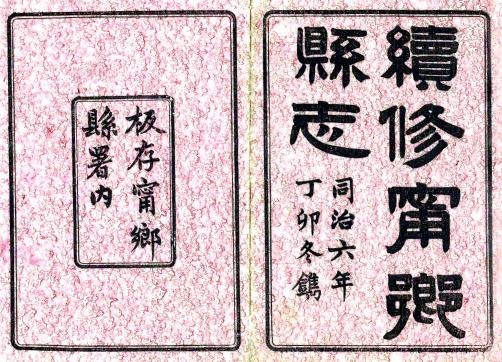 續修甯鄉
縣志
同治六年
丁卯冬鐫
板存甯鄉
縣署內